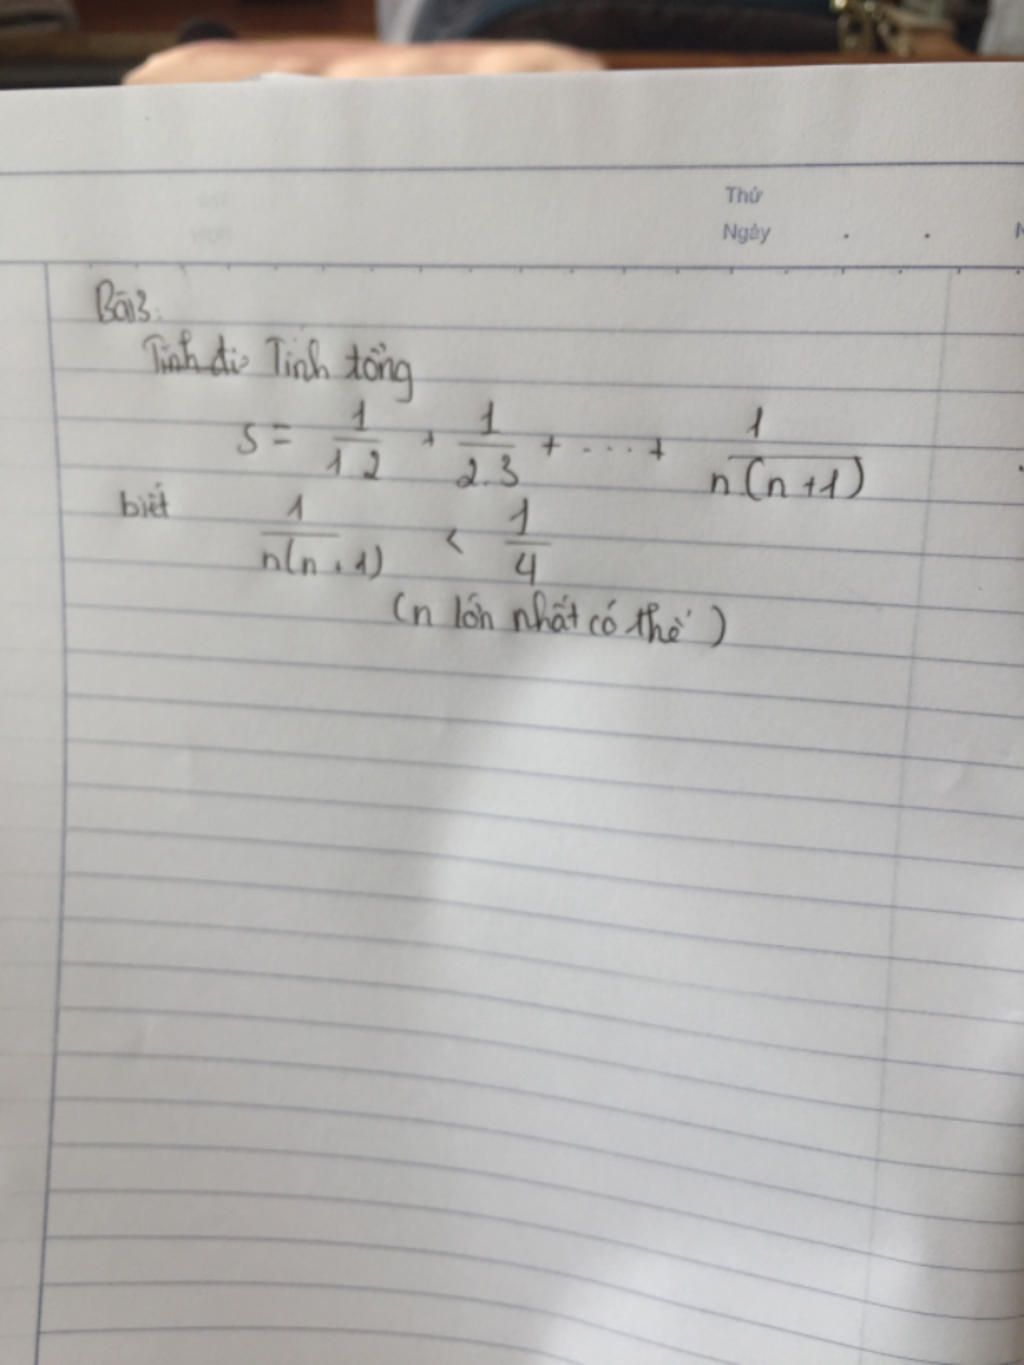 Thứ
Ngày . .
Bài 3:
Tính đi Tính tổng
S = 1/1.2 + 1/2.3 + ... + 1/n(n+1)
biết 1/n(n+1) < 1/4
(n lớn nhất có thể)